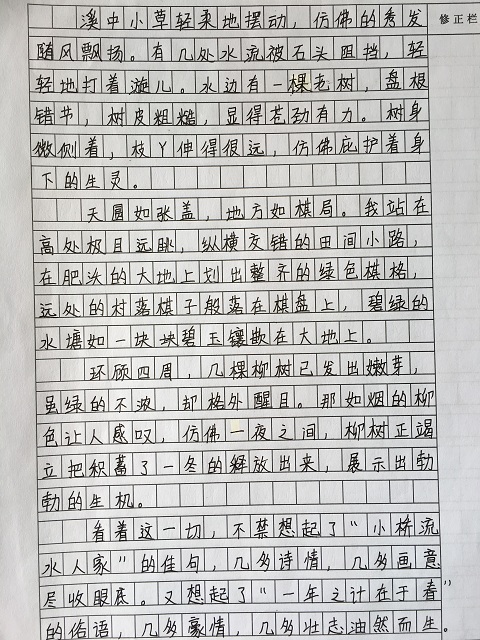 溪中小草轻柔地摆动，仿佛的秀发
随风飘扬。有几处水流被石头阻挡，轻
轻地打着漩儿。水边有一棵老树，盘根
错节，树皮粗糙，显得苍劲有力。树身
微侧着，枝丫伸得很远，仿佛庇护着身
下的生灵。
天圆如张盖，地方如棋局。我站在
高处极目远眺，纵横交错的田间小路，
在肥沃的大地上划出整齐的绿色棋格，
远处的村落棋子般落在棋盘上，碧绿的
水塘如一块块碧玉镶嵌在大地上。
环顾四周，几棵柳树已发出嫩芽，
虽绿的不浓，却格外醒目。那如烟的柳
色让人感叹，仿佛一夜之间，柳树正竭
立把积蓄了一冬的释放出来，展示出勃
勃的生机。
看着这一切，不禁想起了“小桥流
水人家”的佳句，几多诗情，几多画意
尽收眼底。又想起了“一年之计在于春”
的俗语，几多豪情，几多壮志油然而生。
修正栏